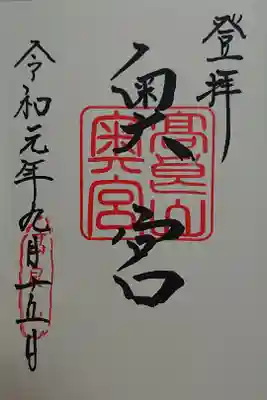 登拝
奥宮
高良山
奥宮
令和元年九月十五日